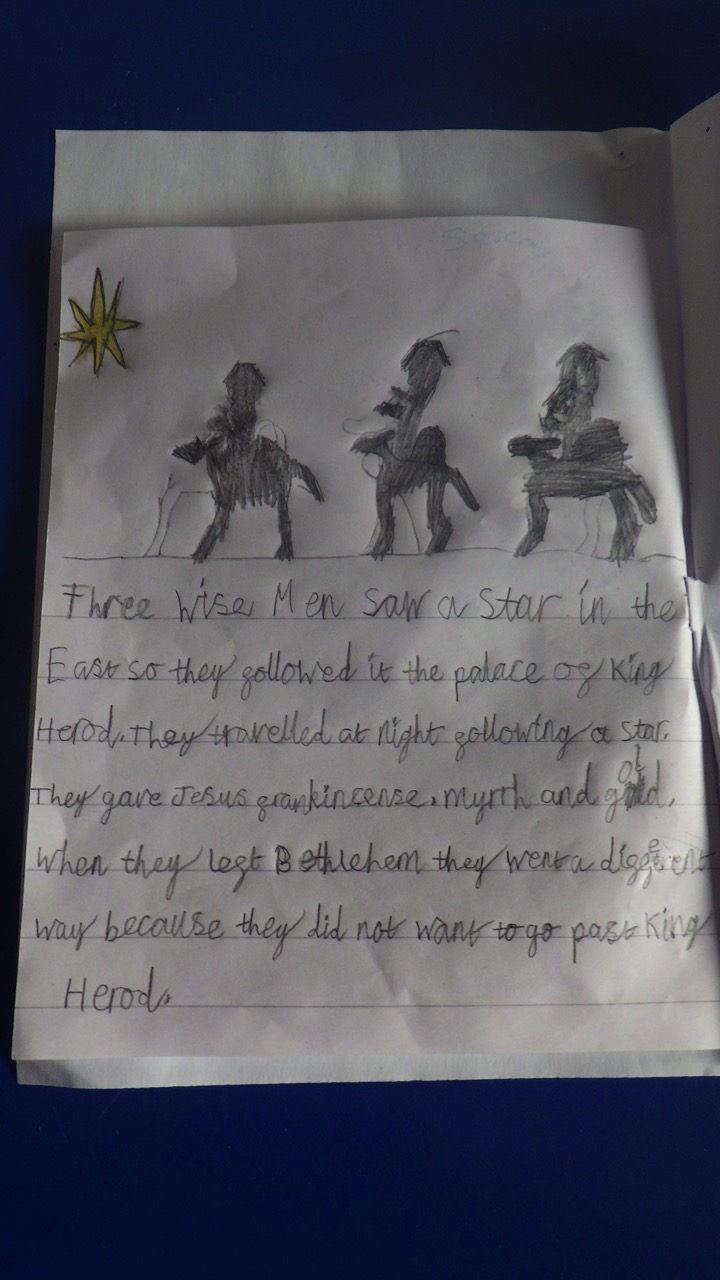 Seren
Three Wise Men saw a star in the
East so they followed it the palace of King
Herod. They travelled at night following a star.
They gave Jesus frankincense, myrrh and gold.
When they left Bethlehem they went a different
way because they did not want to go past King
Herod.